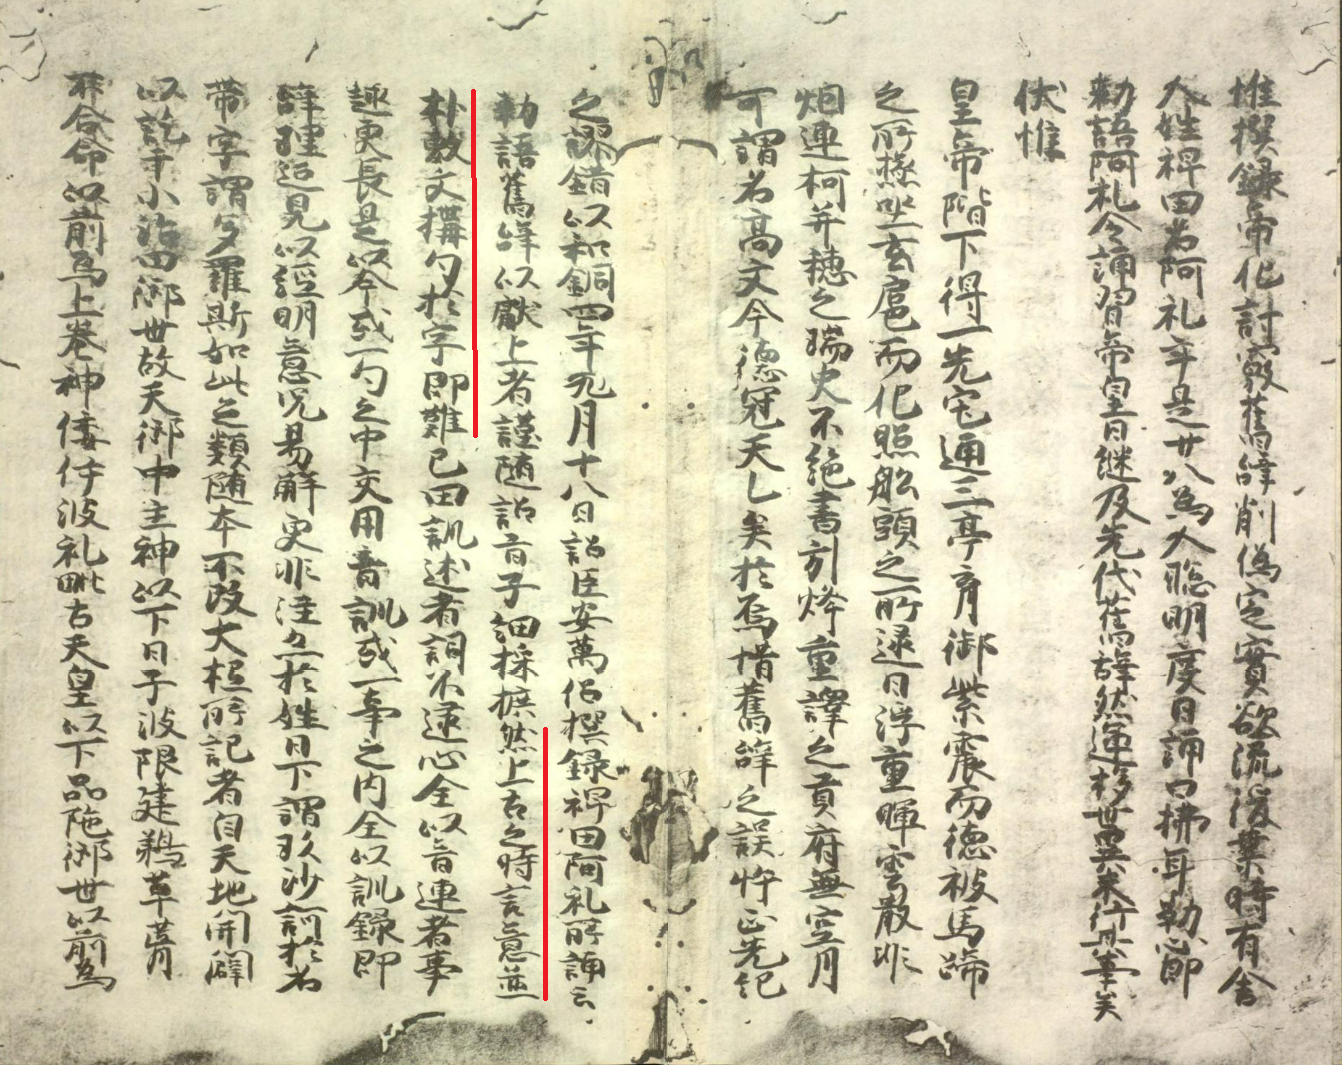 惟撰録帝紀討覈舊辞削偽定實欲流後葉時有舎
人姓稗田名阿礼年是廿八為人聡明度目誦口拂耳勒心即
勅語阿礼令誦習帝皇日継及先代舊辞然運移世異未行其事矣
伏惟
皇帝陛下得一光宅通三亭育御紫宸而徳被馬蹄
之所極坐玄扈而化照舩頭之所逮日浮重暉雲散非
烟連柯并穂之瑞史不絶書列烽重譯之貢府無空月
可謂名高文命徳冠天乙矣於焉惜舊辞之誤忤正先紀
之謬錯以和銅四年九月十八日詔臣安萬侶撰録稗田阿礼所誦之
勅語舊辞以獻上者謹随詔旨子細採摭然上古之時言意並
朴敷文構句於字即難已因訓述者詞不逮心全以音連者事
趣更長是以今或一句之中交用音訓或一事之内全以訓録即
辞理叵見以注明意况易解更非注亦於姓日下謂玖沙訶於名
帯字謂多羅斯如此之類随本不改大抵所記者自天地開闢
以訖于小治田御世故天御中主神以下日子波限建鵜草葺
不合命以前為上巻神倭伊波礼毗古天皇以下品陁御世以前為